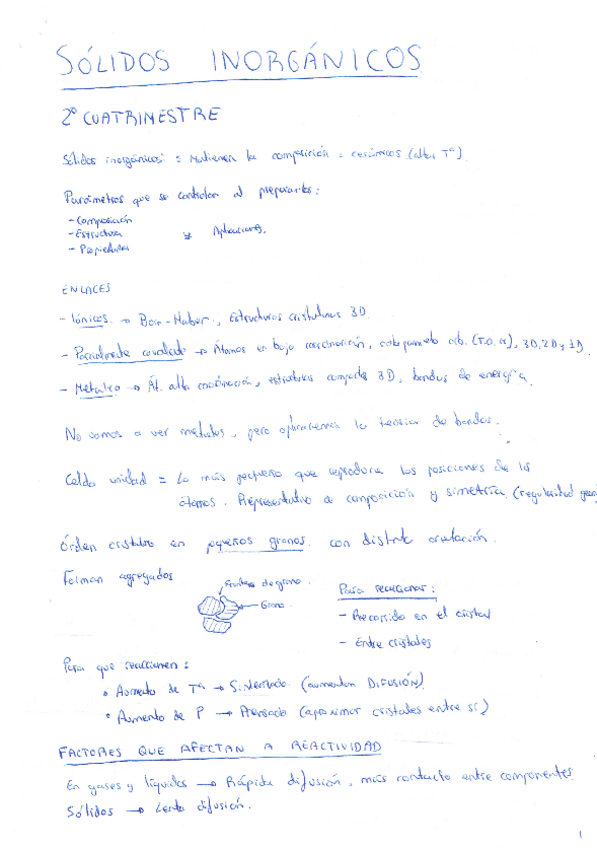 SÓLIDOS INORGÁNICOS
2º CUATRIMESTRE
Sólidos inorgánicos: = Mantienen la composición = cerámicos (altas Tª)
Parámetros que se controlan al prepararlos:
- Composición
- Estructura
- Propiedades
Aplicaciones.
ENLACES
- Iónicos. → Born-Haber., Estructuras cristalinas 3D.
- Parcialmente covalente → Átomos en baja coordinación, orb. (T.O.M), 3D, 2D y 1D.
- Metálico → Át. alta coordinación, estructuras compactas 3D, bandas de energía.
No vamos a ver metales, pero aplicaremos la teoría de bandas.
Celda unidad = Lo más pequeño que reproduce las posiciones de los
átomos. Representativo de composición y simetría. (regularidad
Órden cristalino en pequeños granos. con distinta orientación.
Forman agregados
Fronteras de grano.
Grano.
Para reaccionar:
- Recorrido en el cristal
- Entre cristales
Para que reaccionen:
• Aumento de Tª → Sinterizado. (aumentan DIFUSIÓN)
• Aumento de P → Prensado (aproximar cristales entre sí)
FACTORES QUE AFECTAN A REACTIVIDAD
En gases y líquidos → Rápida difusión, más contacto entre componentes.
Sólidos → Lenta difusión.
1